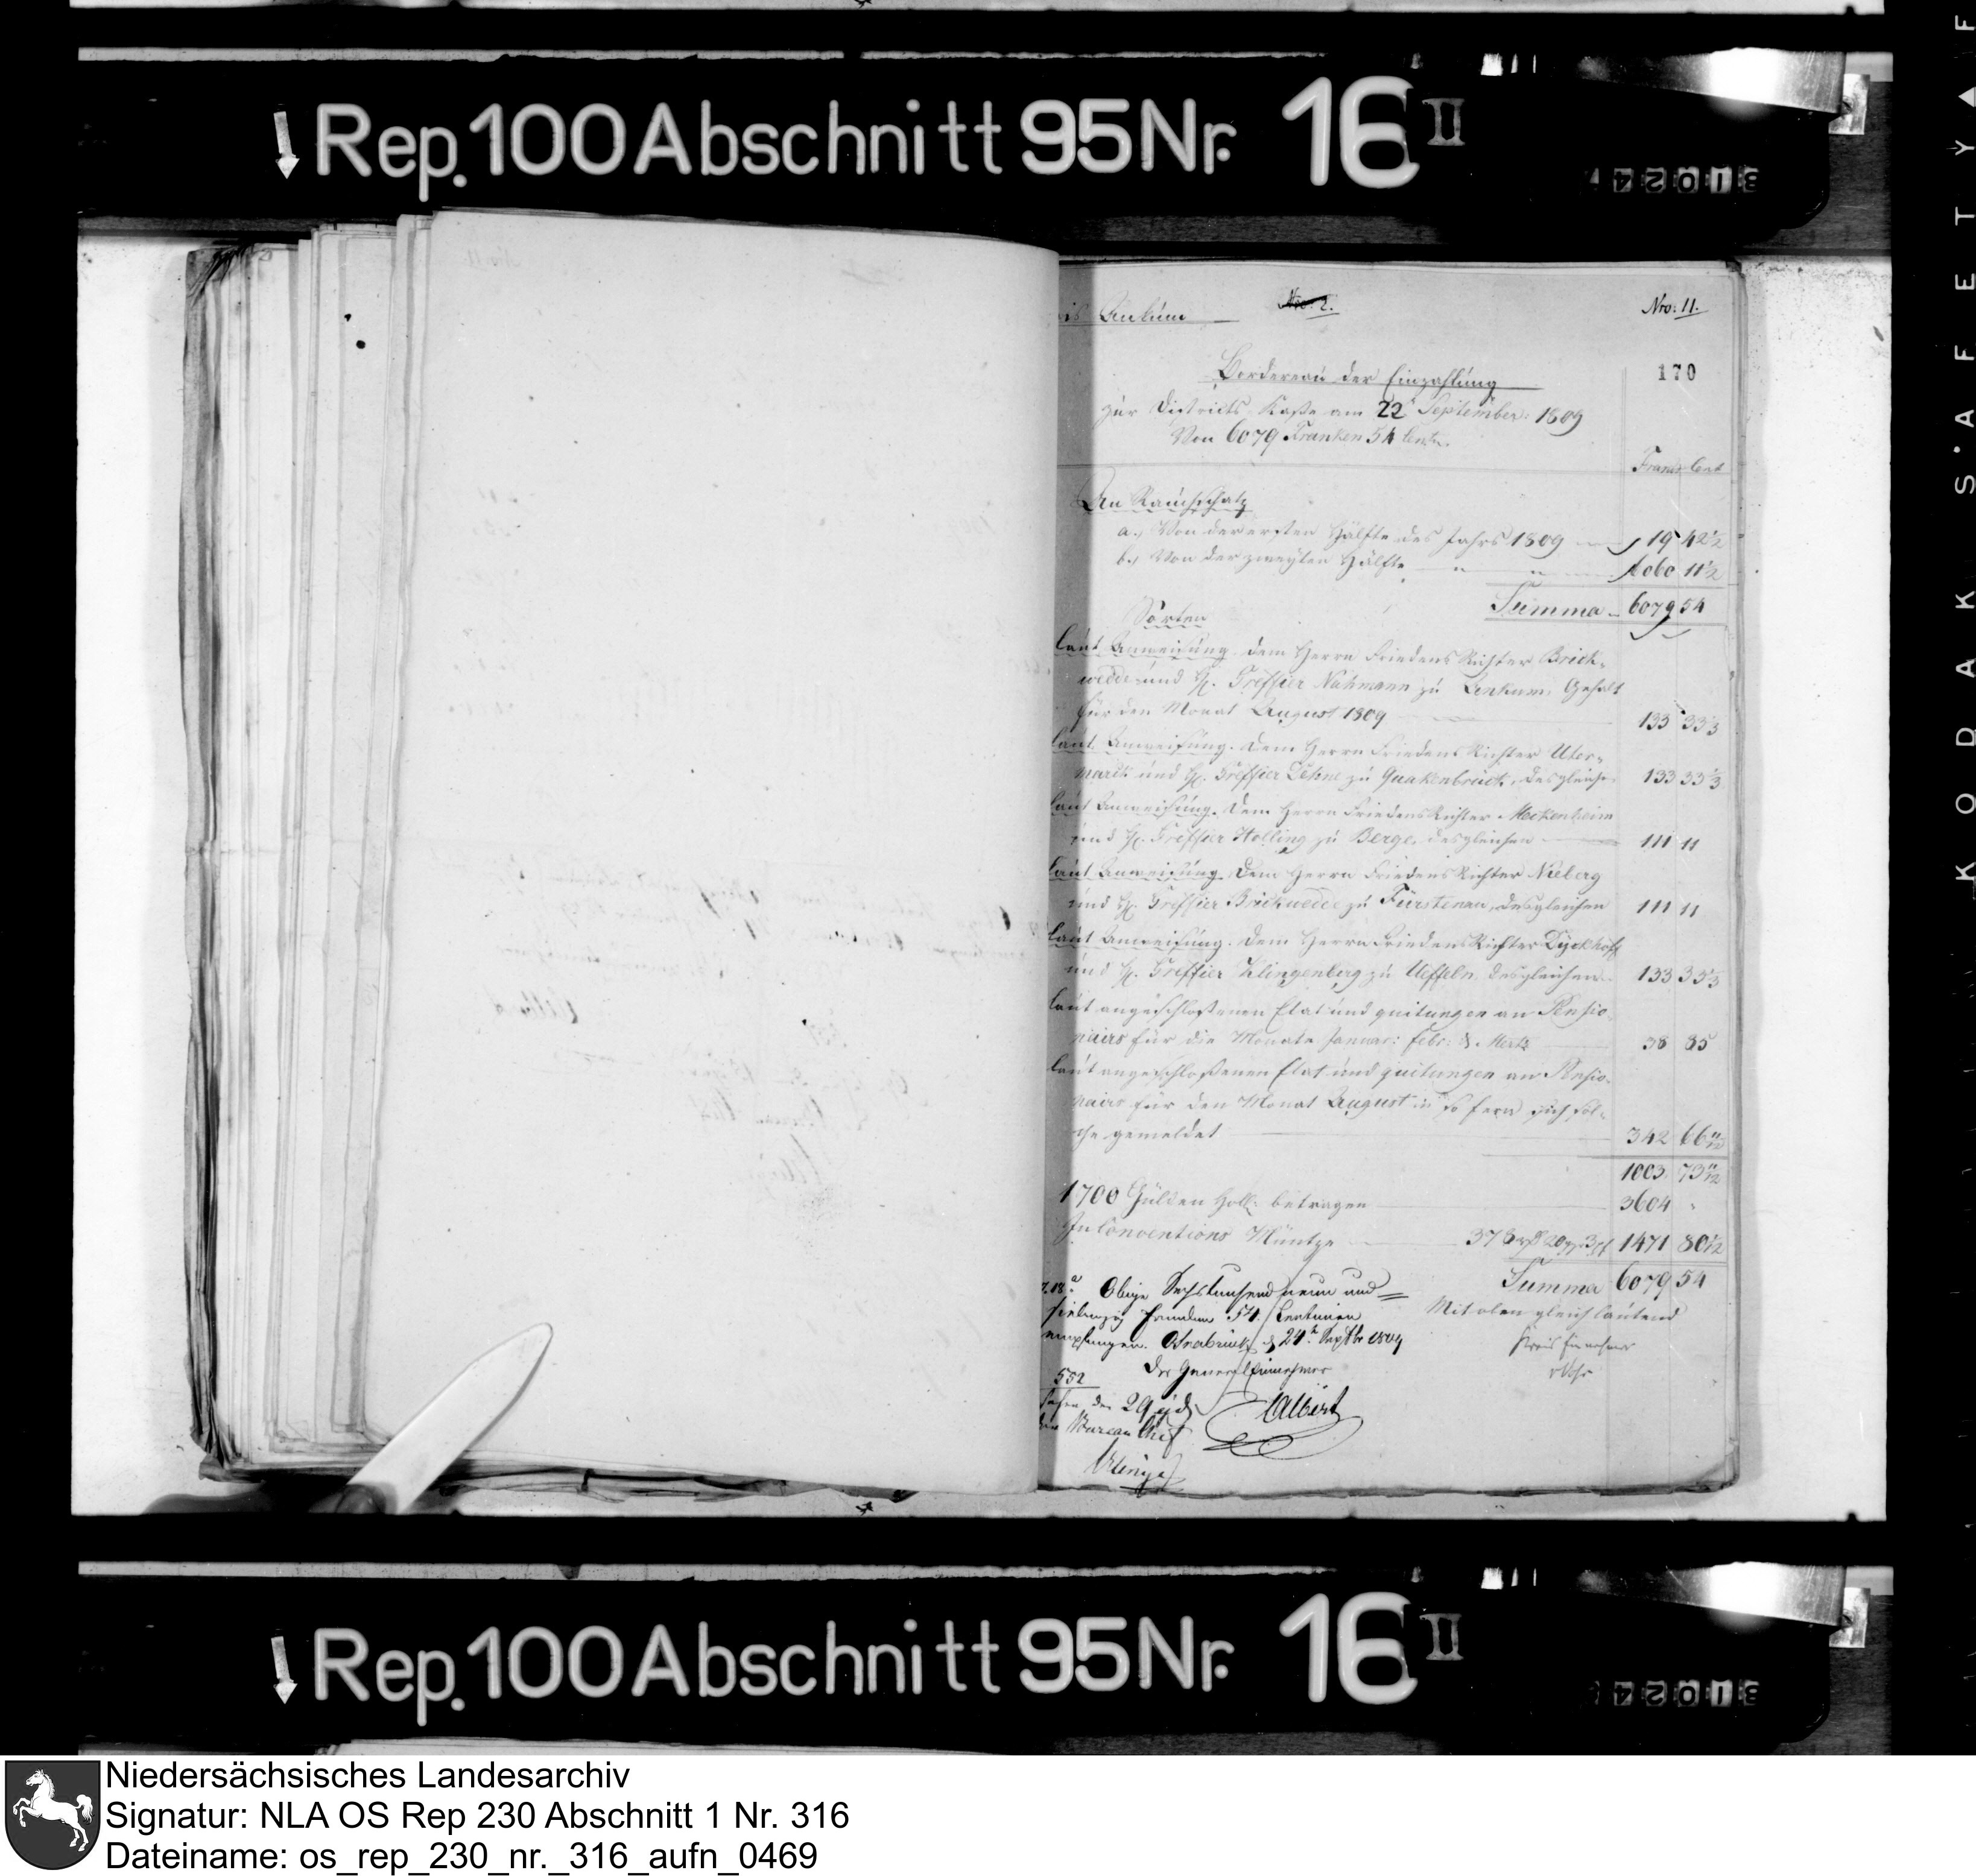 Rep. 100 Abschnitt 95 Nr. 16 II
is Ankum
Nro: 2.
Nro: 11.
170
Bordereau der Einzahlung
zur Districts-Kasse am 22 September: 1809
Von 6079 Franken 54 Cent.
Franc Cent
An Rauchschatz
a., Von der ersten Hälfte des Jahrs 1809 19 42½
b., Von der zweyten Hälfte " " 6060 11½
Summa 6079 54
Sorten
laut Anweisung. dem Herrn Friedens Richter Brick-
wedde und H. Greffier Nahmann zu Ankum, Gehalt
für den Monat August 1809 133 33⅓
laut Anweisung. dem Herrn Friedens Richter Uter-
mark und H. Greffier Dehne zu Quakenbrück, desgleich. 133 33⅓
laut Anweisung. dem Herrn Friedens Richter Mekenheim
und H. Greffier Holling zu Berge, desgleichen 111 11
laut Anweisung. dem Herrn Friedens Richter Nieberg
und H. Greffier Brickwedde zu Fürstenau, desgleichen 111 11
laut Anweisung. dem Herrn Friedens Richter Dyckhoff
und H. Greffier Klingenberg zu Ueffeln, desgleichen 133 33⅓
laut angeschloßenen Etat und quitungen an Pensio-
nairs für die Monate Januar: Febr: & Mertz 38 85
laut angeschloßenen Etat und quitungen an Pensio-
nairs für den Monat August in so fern sich sol-
che gemeldet 342 66 11/12
1003 73 11/12
1700 Gülden Holl: betragen 3604 "
In Conventions Müntze 378 rt 20 gr 3 pf 1471 80 1/12
Summa 6079 54
Obige Sechstausend neun und
siebenzig Franken 54/ Centimen
empfangen. Osnabrück d 24t Septbr 1809
Der General Einnehmer
Mit oben gleich lautend
Kreis Einnehmer
552
den 29 ejd
Bureau Chef
Rep. 100 Abschnitt 95 Nr. 16 II
KODAK S'AFETY
Niedersächsisches Landesarchiv
Signatur: NLA OS Rep 230 Abschnitt 1 Nr. 316
Dateiname: os_rep_230_nr._316_aufn_0469